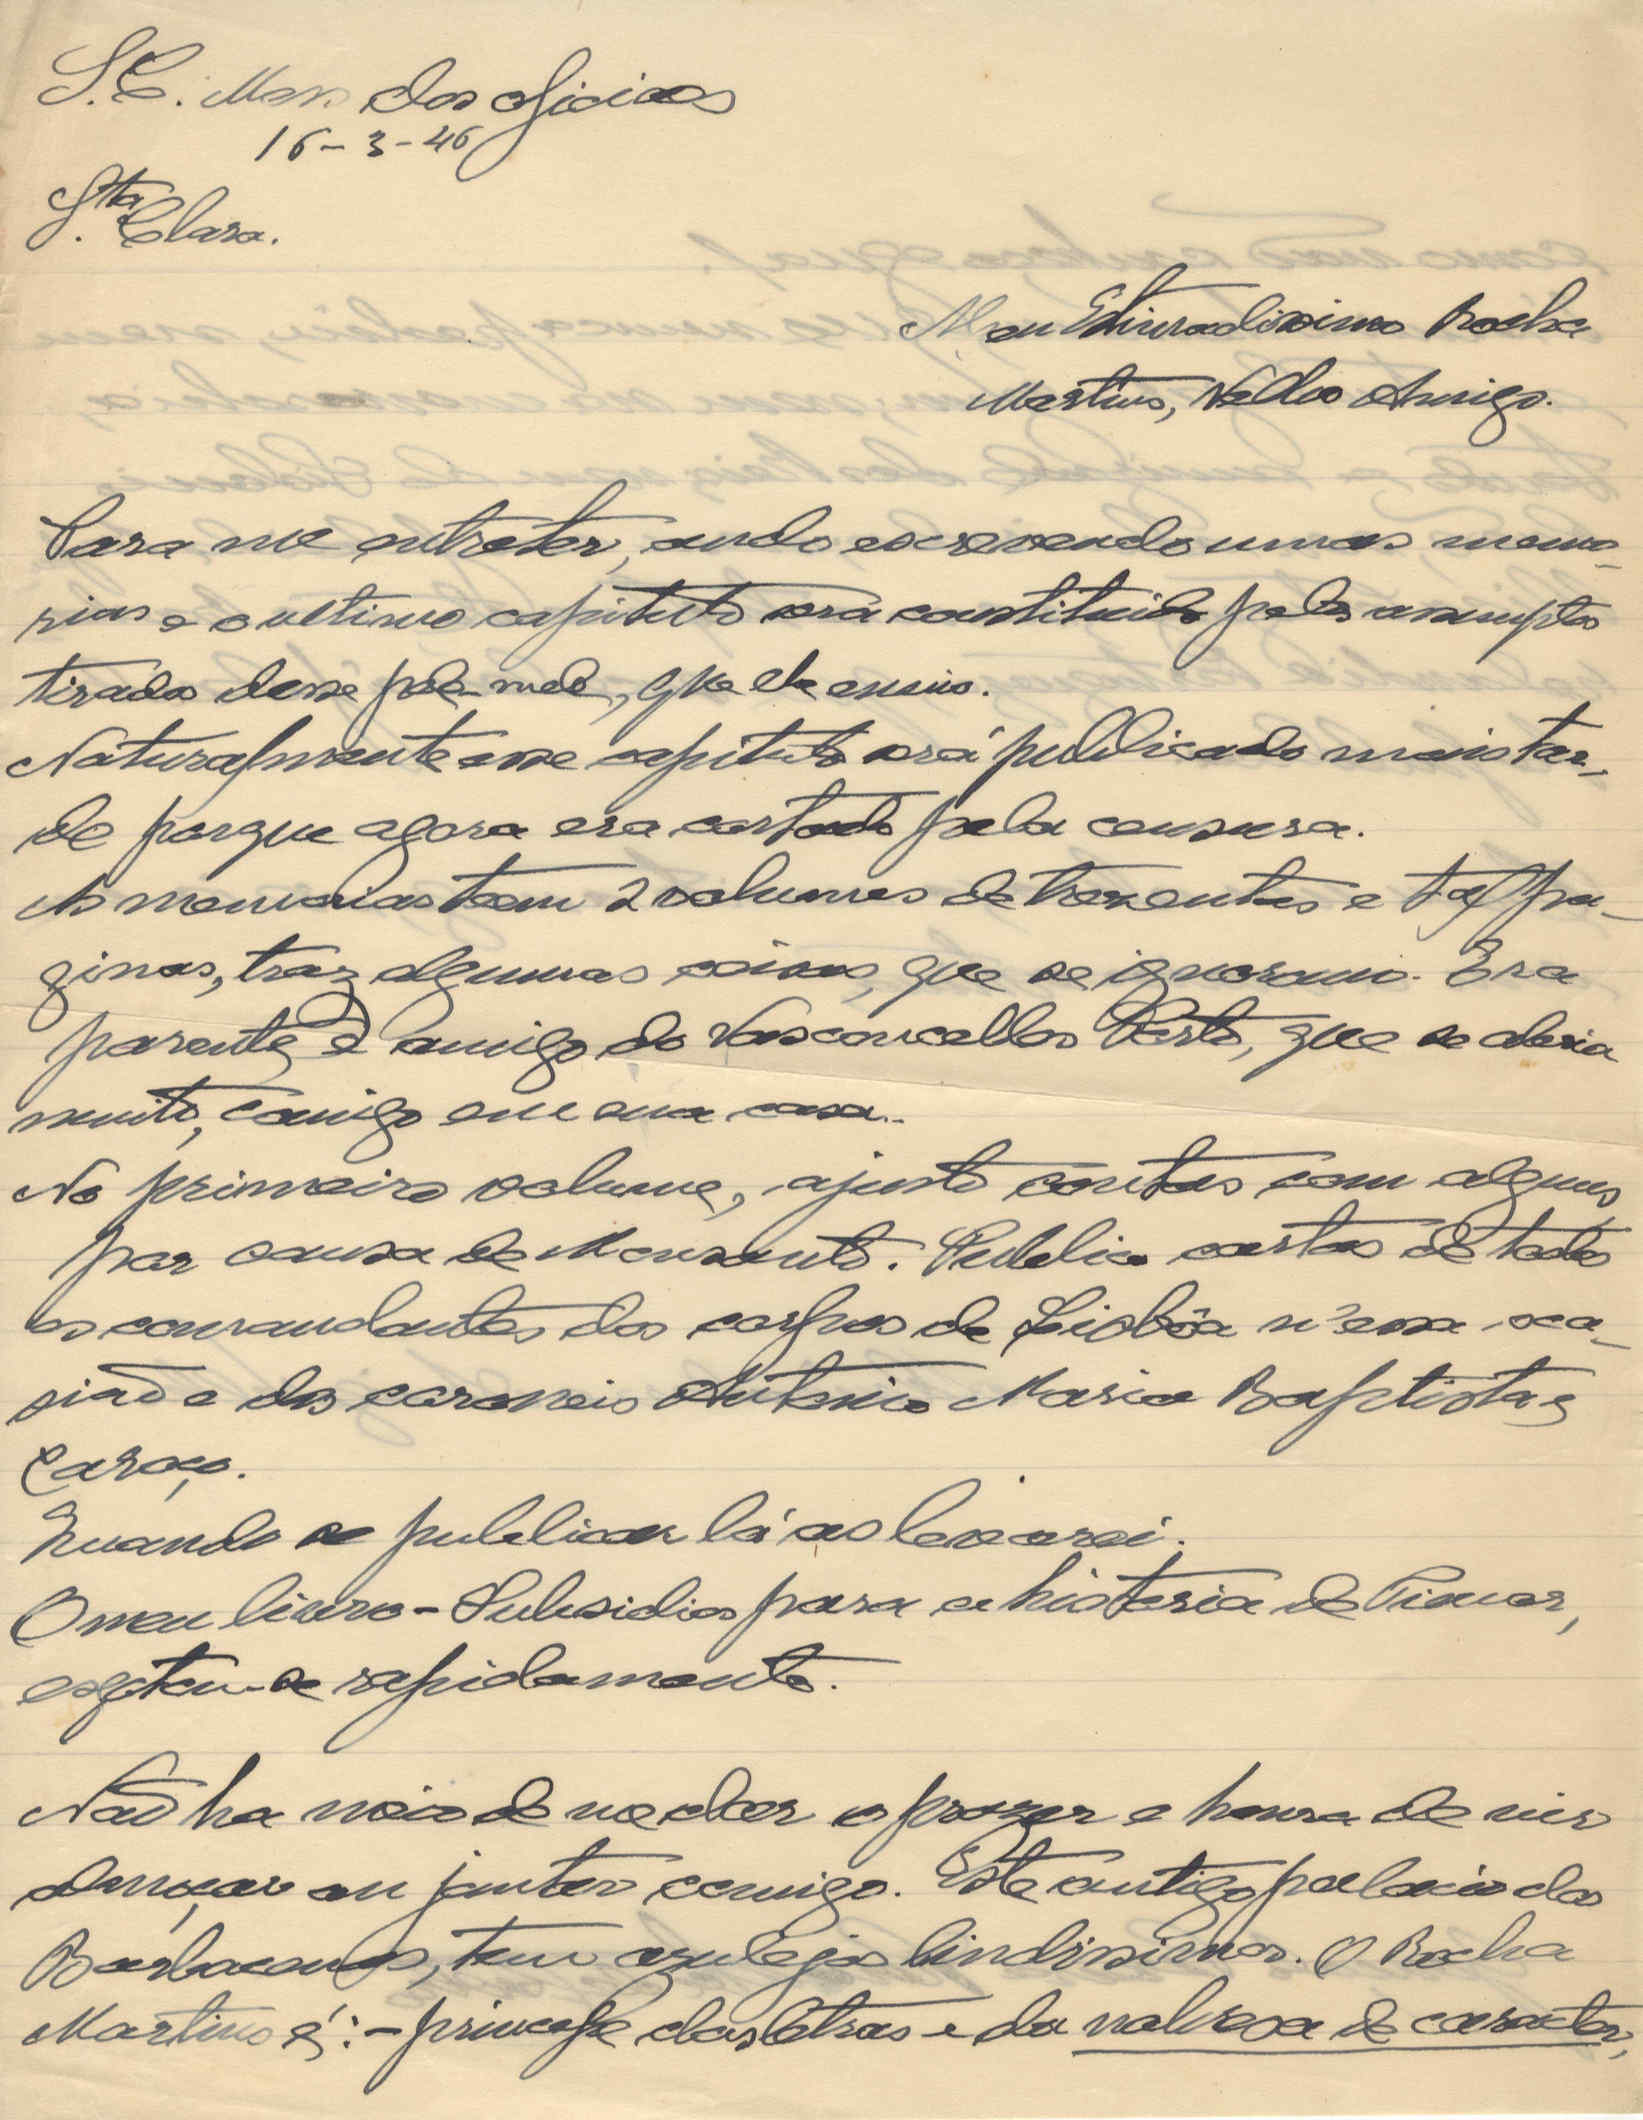 S.C. Messe dos oficiaes
16-3-46
Sta Clara.
Meu Estimadissimo Rocha
Martins, Velho Amigo.
Para me entreter, ando escrevendo umas memo-
rias e o ultimo capitulo será constituido pelos assumptos
tirados desse que lhe envio.
Naturalmente esse capitulo será publicado mais tar-
de porque agora era cortado pela censura.
As memorias tem 2 volumes de trezentas e tal pa-
ginas, traz algumas coisas, que se ignoram. Era
parente e amigo do Vasconcellos Porto, que se abria
muito, comigo em sua casa.
No primeiro volume, ajusto contas com alguns,
por causa de Monsanto. Publico cartas de todos
os comandantes dos corpos de Lisbôa n'essa oca-
sião e dos coroneis Antonio Maria Baptista e
Quando se publicar lá as levarei.
O meu livro - Subsidios para a historia de Timor,
esgotou-se rapidamente.
Não ha meio de me dar o prazer e honra de vir
almoçar ou jantar comigo. Este antigo palacio dos
Barbacenas, tem azulejos lindissimos. O Rocha
Martins é: - principe das letras e da nobresa de caracter,